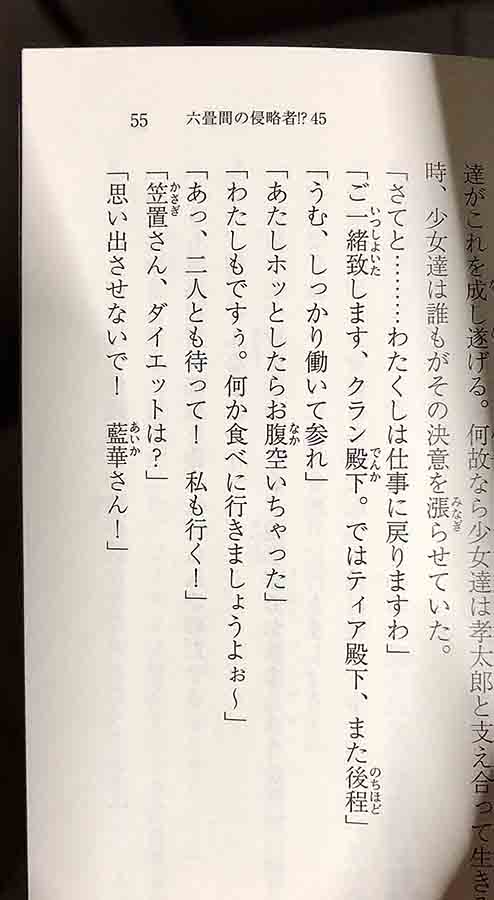 55 六畳間の侵略者!? 45
達がこれを成し遂げる。何故なら少女達は孝太郎と支え合って生き
時、少女達は誰もがその決意を漲らせていた。
「さてと………わたくしは仕事に戻りますわ」
「ご一緒致します、クラン殿下。ではティア殿下、また後程」
「うむ、しっかり働いて参れ」
「あたしホッとしたらお腹空いちゃった」
「わたしもですぅ。何か食べに行きましょうよぉ～」
「あっ、二人とも待って！　私も行く！」
「笠置さん、ダイエットは？」
「思い出させないで！　藍華さん！」